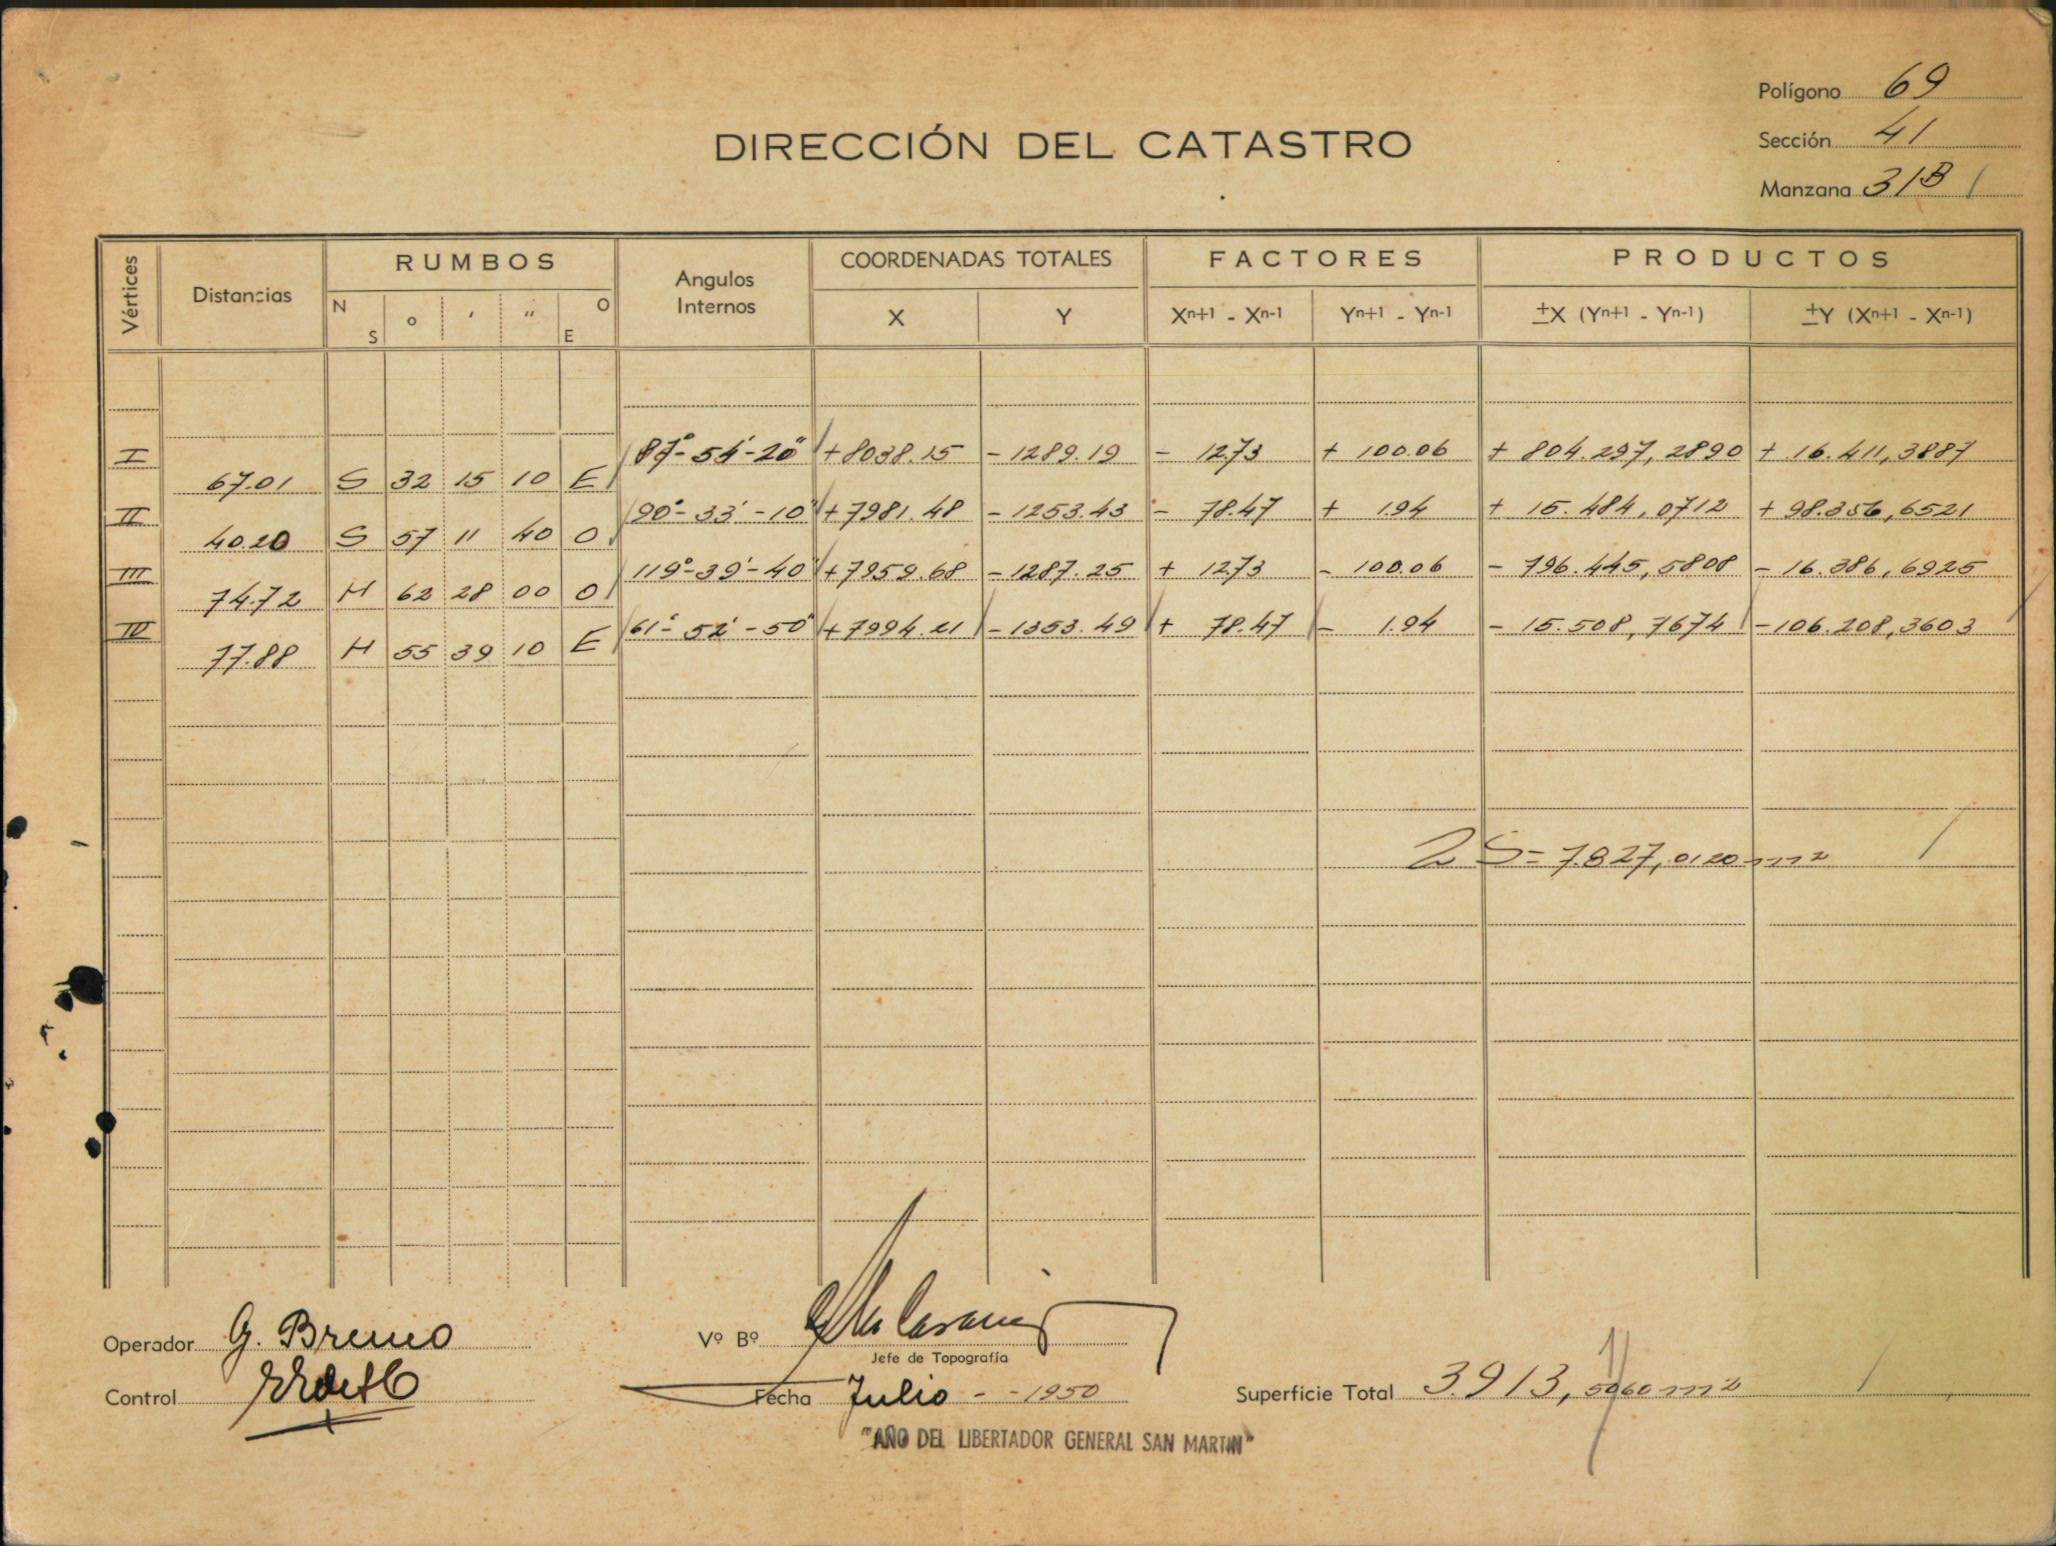 Polígono 69
DIRECCIÓN DEL CATASTRO
Sección 41
Manzana 31B
Vértices Distancias RUMBOS Angulos Internos COORDENADAS TOTALES FACTORES PRODUCTOS
N S o ' " O E X Y Xn+1 - Xn-1 Yn+1 - Yn-1 ±X (Yn+1 - Yn-1) ±Y (Xn+1 - Xn-1)
I 87°-54'-20" +8038.15 -1289.19 - 12.73 + 100.06 + 804.297,2890 + 16.411,3887
67.01 S 32 15 10 E
II 90°-33'-10" +7981.48 -1253.43 - 78.47 + 1.94 + 15.484,0712 + 98.356,6521
40.20 S 57 11 40 O
III 119°-39'-40" +7959.68 -1287.25 + 12.73 - 100.06 - 796.445,5808 - 16.386,6925
74.72 N 62 28 00 O
IV 61°-52'-50" +7994.21 -1353.49 + 78.47 - 1.94 - 15.508,7674 -106.208,3603
77.88 N 55 39 10 E
2 S = 7.827,0120 m2
Operador G. Bruno
Vº Bº
Jefe de Topografía
Control
Fecha Julio - -1950
Superficie Total 3.913,5060 m2
"AÑO DEL LIBERTADOR GENERAL SAN MARTIN"